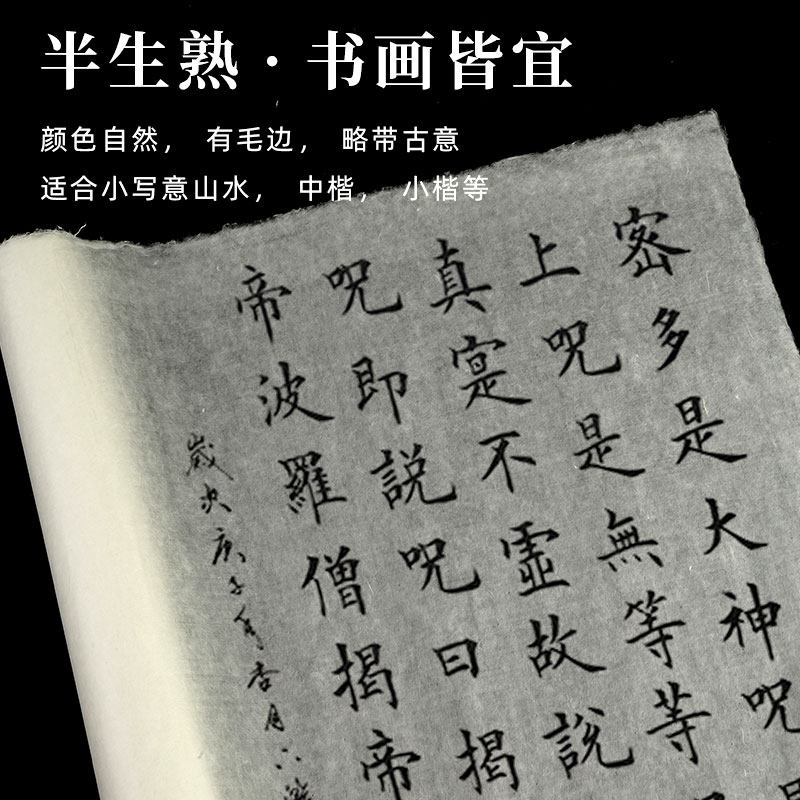 半生熟·书画皆宜
颜色自然， 有毛边， 略带古意
适合小写意山水， 中楷， 小楷等
密多是大神呪
上呪是無等等
真寔不虛故說
呪即說呪曰揭
帝波羅僧揭帝
歲次庚子年杏月